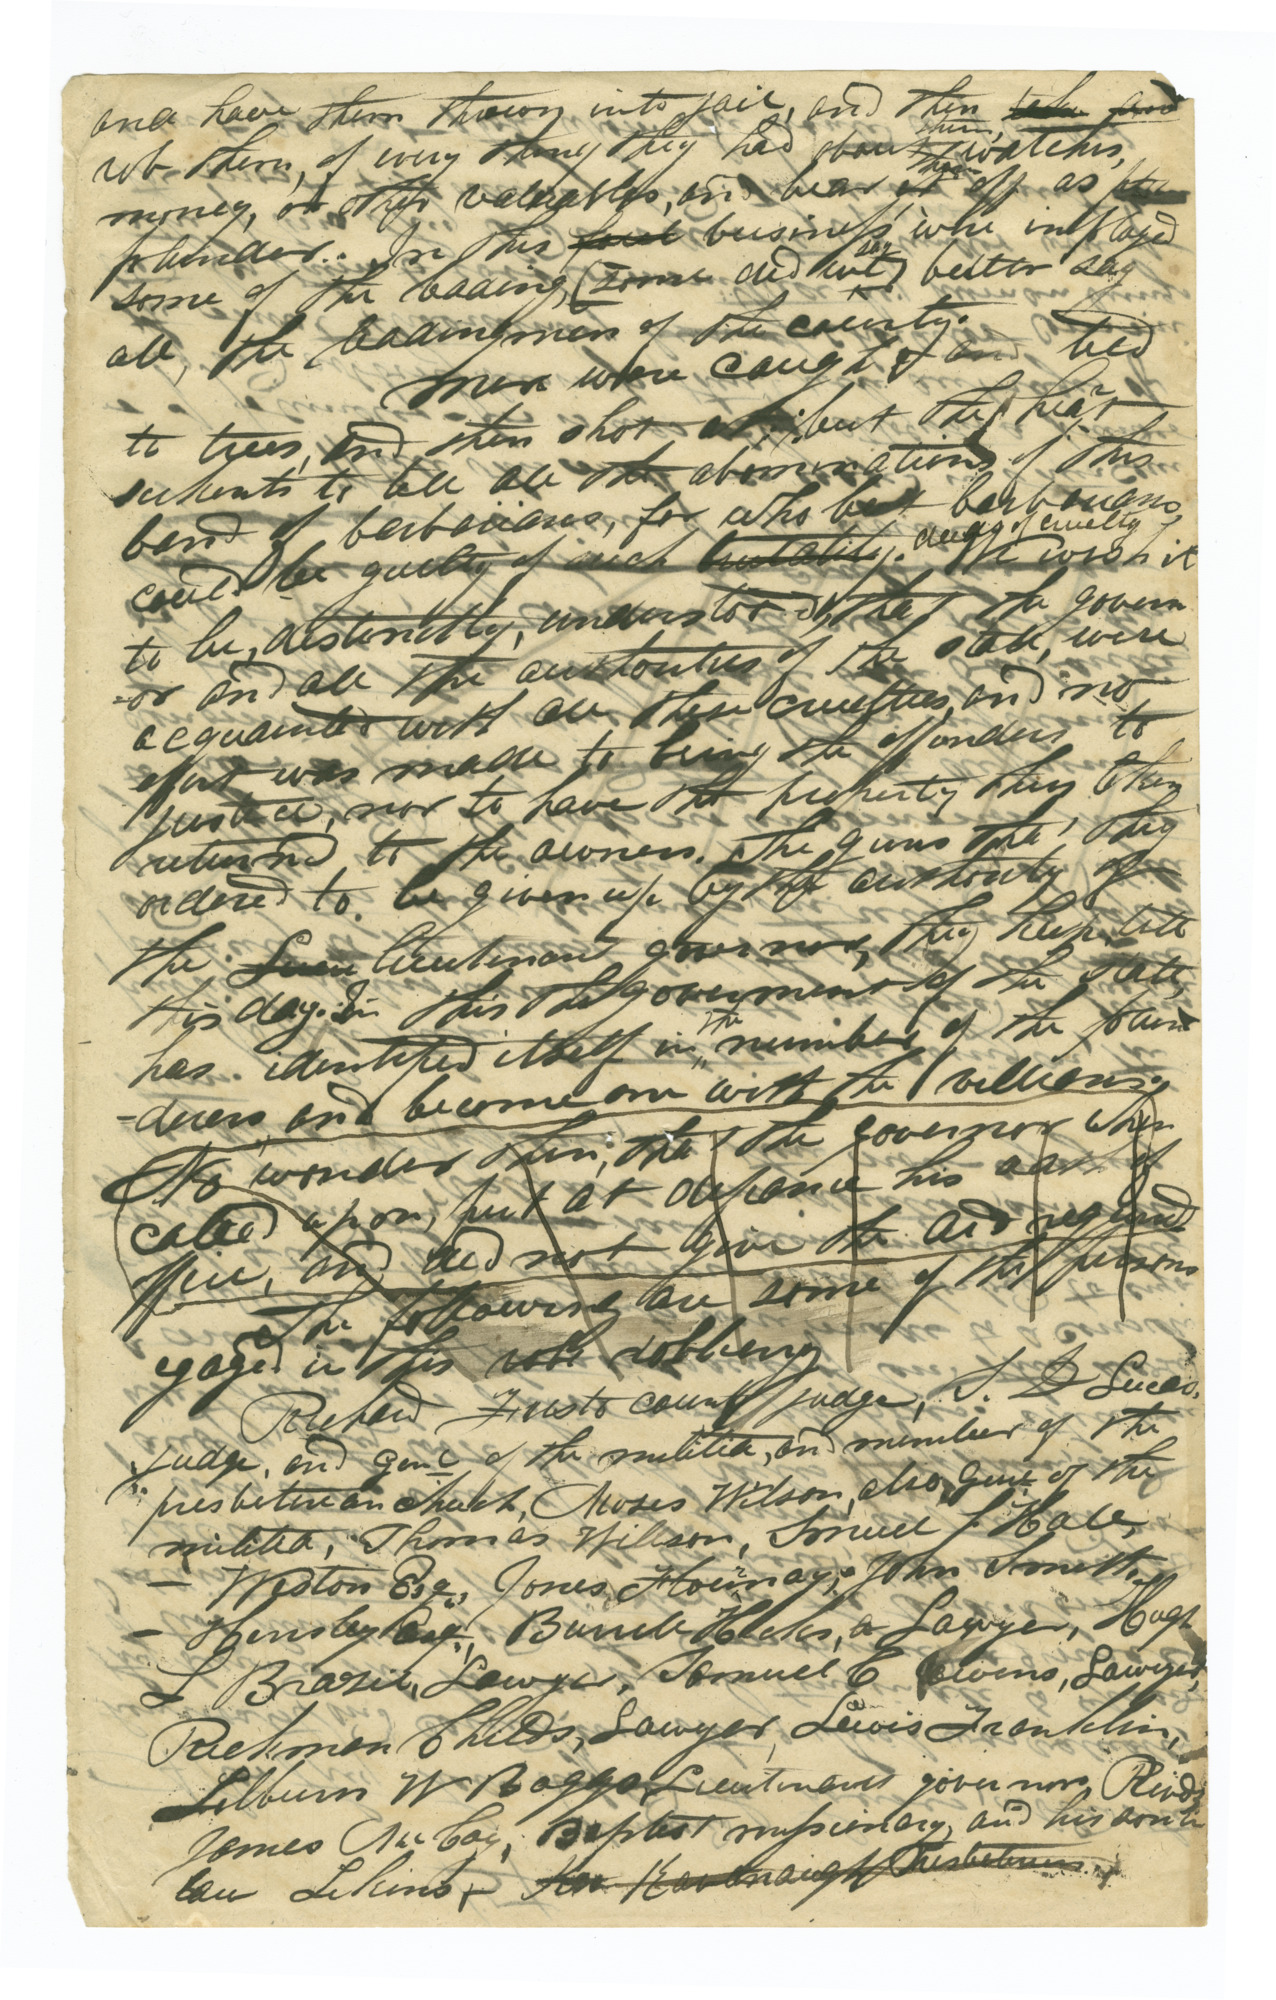 and have them thrown into jail, and then take and
rob them, of every thing they had about them, watches,
money, or other valuables, and bear them off as
plunder. In this business, were imployed
some of the leading, (some did not say) better say
all, the leading men of the county.
men were caught and tied
to trees, and then shot at; but the heart
sickents to tell all the abominations of this
band of barbarians, for who but barbarians
could be guilty of such brutality. deeds of cruelty We wish it
to be, distinctly, understood, that the govern
-or and all the authorities of the state, were
acquainted with all these cruelties, and no
effort was made to bring the offenders to
justice, nor to have the property they taken
returned to the owners. The guns the, they
ordered to be given up by the authority of
the Lieutenant governor, they keep till
this day. In this the government of the state,
has identified itself in the number of the plun
-derers and become one with the villians;
No wonder then, that the governor when
called upon, put at defiance his oath of
office, and did not give the aid required
The following are some of the persons
egaged in this robbing
Richard Fristo county judge, S. D Lucas,
judge, and genl of the militia, and member of the
presbeterian church, Moses Wilson, also, genl of the
militia, Thomas Wilson, Smuel J Hall,
— Weston Esq, Jones Flournay, John Smith,
— Hensley Esq, Burrele Hicks, a Lawyer, Hugh
L Brazil, Lawyer, Samuel C Owens, Lawyer,
Richman Childs, Lawyer, Lewis Franklin,
Lilburn W Boggs, Lieutenant governor, Revd
James McCoy, Baptist missionary, and his son in
law Likins, Kavanaugh Presbeterian